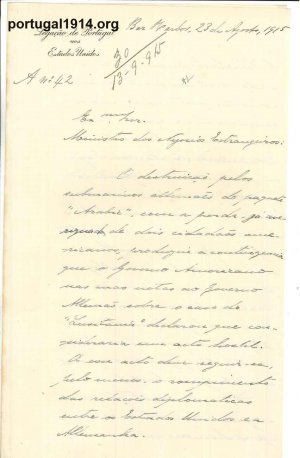 portugal1914.org
Legação de Portugal
nos
Estados Unidos
Bar Harbor, 23 de Agosto, 1915
A nº 42
30
13-9-915
Exmo Snr.
Ministro dos Negocios Estrangeiros:
O destruição pelos
submarinos allemães do paquete
"Arabic", com a perda, já
de dois cidadãos ame-
ricanos, produziu a contingencia
que o Governo Americano
nas suas notas ao Governo
Allemão sobre o caso do
"Lusitania" declarou que con-
sideraria um acto hostil.
A esse acto deve seguir-se,
pelo menos, o rompimento
das relações diplomaticas
entre os Estados Unidos e a
Allemanha.